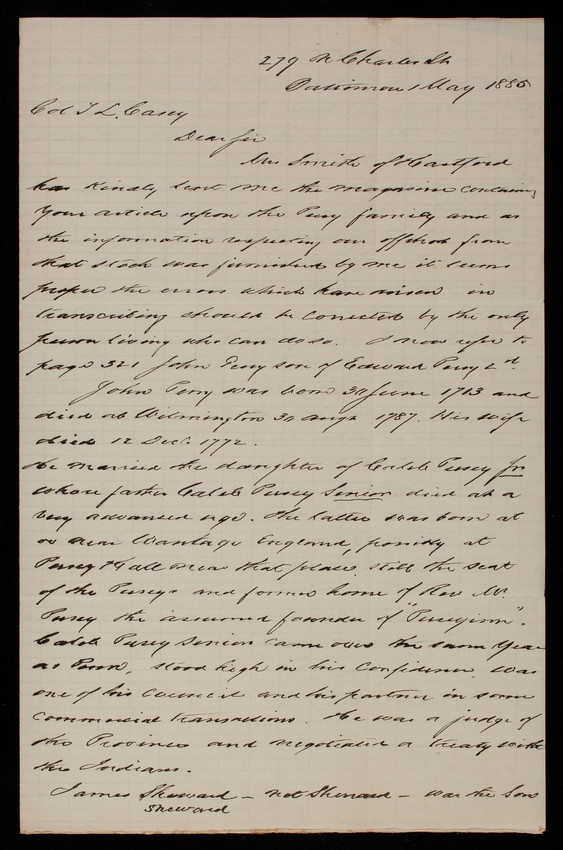 279 N Charles St
Baltimore 1 May 1885
Col T L. Casey
Dear Sir
Mrs Smith of Hartford
has kindly sent me the magazine containing
your article upon the Perry family and as
the information respecting our offshoot from
that stock was furnished by me it seems
proper the errors which have arisen in
transcribing should be corrected by the only
person living who can do so. I now refer to
page 321 John Perry son of Edward Perry 2d.
John Perry was born 30 June 1713 and
died at Wilmington 30 Augt 1787. His wife
died 12 Dect. 1772.
He married the daughter of Caleb Pusey Jr
whose father Caleb Pusey Senior died at a
very advanced age. The latter was born at
or near Wantage England, possibly at
Pusey Hall near that place, still the seat
of the Puseys and former home of Rev Mr.
Pusey the assumed founder of "Puseyism".
Caleb Pusey Senior came over the same year
as Penn, stood high in his confidence was
one of his council and his partner in some
commercial transactions. He was a judge of
the Province and negotiated a treaty with
the Indians.
James Sheward - not Sherward - was the son
Sheward